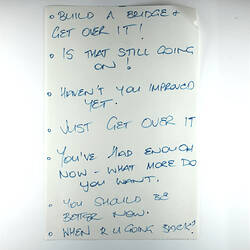 • BUILD A BRIDGE &
GET OVER IT!
• IS THAT STILL GOING
ON!
• HAVEN'T YOU IMPROVED
YET.
• JUST GET OVER IT
• YOU'VE HAD ENOUGH
NOW - WHAT MORE DO
YOU WANT.
• YOU SHOULD BE
BETTER NOW.
• WHEN R U GOING BACK?